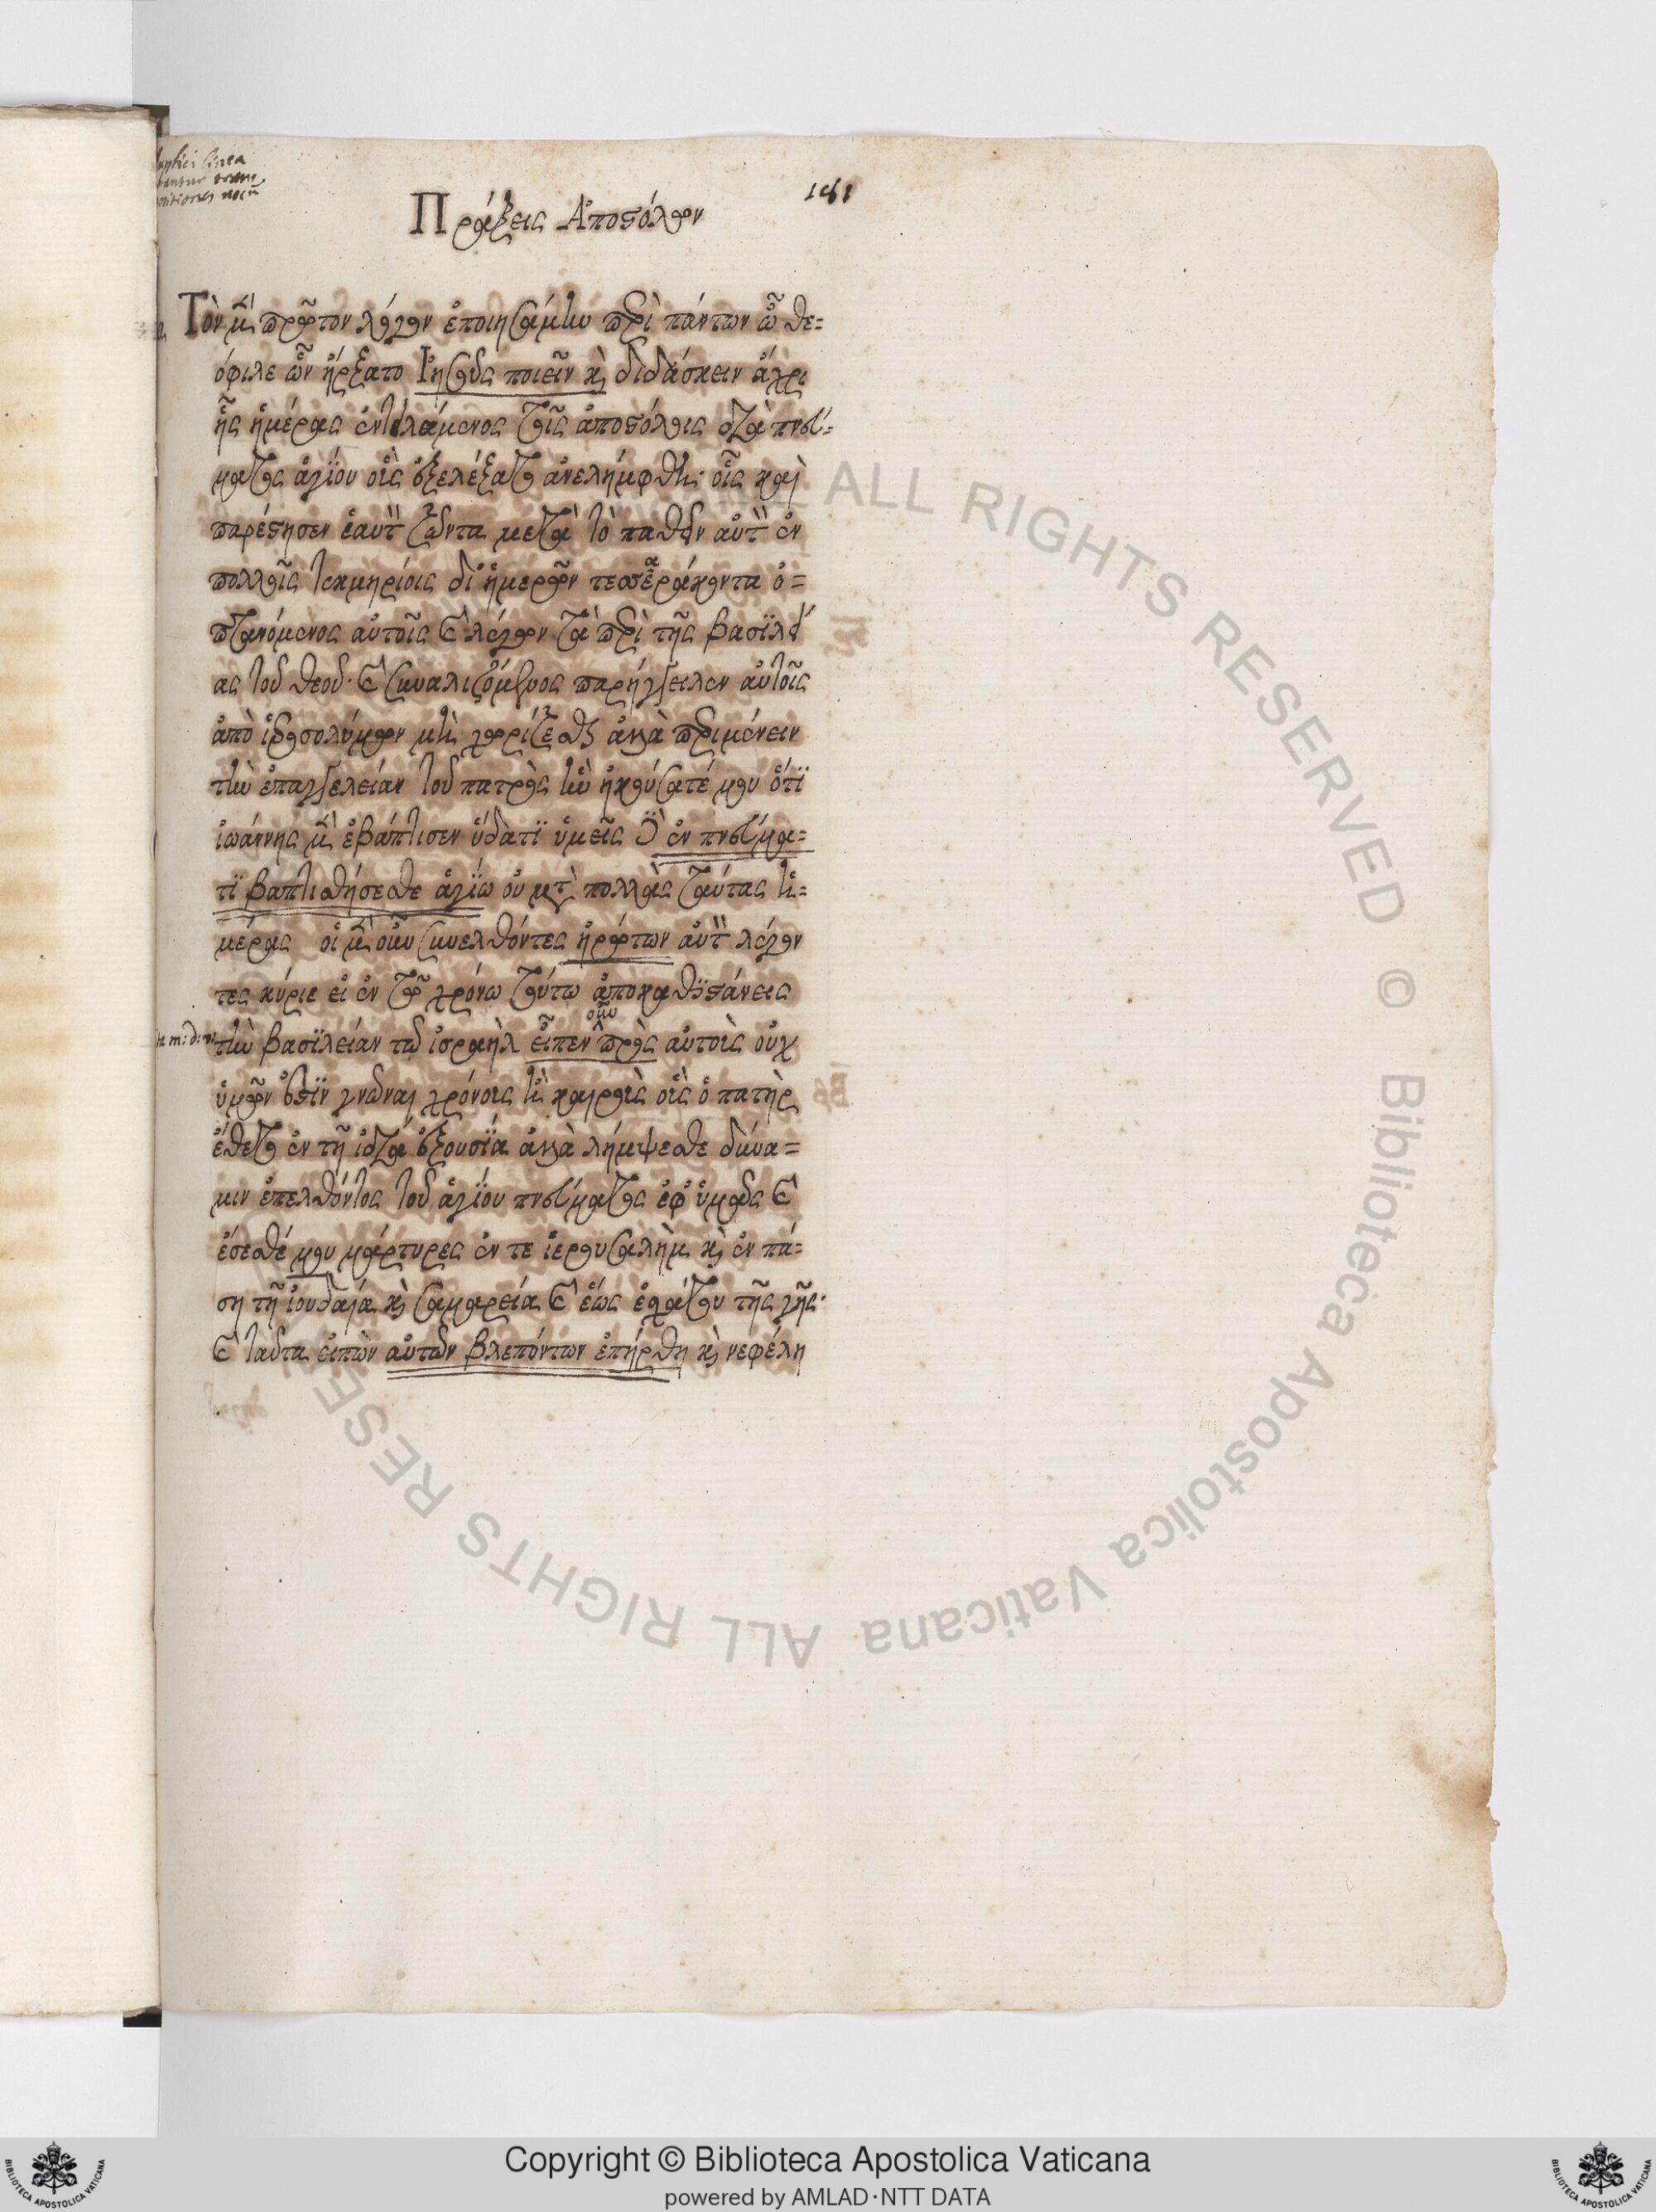 Πράξεις Ἀποστόλων
Τὸν μὲν πρῶτον λόγον ἐποιησάμην περὶ πάντων ὦ θε=
όφιλε ὧν ἤρξατο Ἰησοῦς ποιεῖν καὶ διδάσκειν ἄχρι
ἧς ἡμέρας ἐντειλάμενος τοῖς ἀποστόλοις διὰ πνεύ=
ματος ἁγίου οὓς ἐξελέξατο ἀνελήμφθη· οἷς καὶ
παρέστησεν ἑαυτὸν ζῶντα μετὰ τὸ παθεῖν αὐτὸν ἐν
πολλοῖς τεκμηρίοις δι' ἡμερῶν τεσσεράκοντα ὀ=
πτανόμενος αὐτοῖς καὶ λέγων τὰ περὶ τῆς βασιλεί
ας τοῦ θεοῦ· καὶ συναλιζόμενος παρήγγειλεν αὐτοῖς
ἀπὸ ἱεροσολύμων μὴ χωρίζεσθαι ἀλλὰ περιμένειν
τὴν ἐπαγγελείαν τοῦ πατρὸς ἣν ἠκούσατέ μου ὅτι
ἰωάννης μὲν ἐβάπτισεν ὕδατι ὑμεῖς δὲ ἐν πνεύμα=
τι βαπτισθήσεσθε ἁγίω οὐ μετὰ πολλὰς ταύτας ἡ=
μέρας οἱ μὲν οὖν συνελθόντες ἠρώτων αὐτὸν λέγον
τες κύριε εἰ ἐν τῷ χρόνω τούτω ἀποκαθιστάνεις
τὴν βασιλείαν τῷ ἰσραὴλ εἶπεν οὖν πρὸς αὐτοὺς οὐχ
ὑμῶν ἐστὶν γνῶναι χρόνους ἢ καιροὺς οὓς ὁ πατὴρ
ἔθετο ἐν τῇ ἰδία ἐξουσία ἀλλὰ λήμψεσθε δύνα=
μιν ἐπελθόντος τοῦ ἁγίου πνεύματος ἐφ' ὑμᾶς καὶ
ἔσεσθέ μου μάρτυρες ἔν τε ἱερουσαλὴμ καὶ ἐν πά=
ση τῇ ἰουδαία καὶ σαμαρεία καὶ ἕως ἐσχάτου τῆς γῆς·
καὶ ταῦτα εἰπὼν αὐτῶν βλεπόντων ἐπήρθη καὶ νεφέλη
Copyright © Biblioteca Apostolica Vaticana
powered by AMLAD·NTT DATA
ALL RIGHTS RESERVED © Biblioteca Apostolica Vaticana
BIBLIOTECA APOSTOLICA VATICANA
BIBLIOTECA APOSTOLICA VATICANA